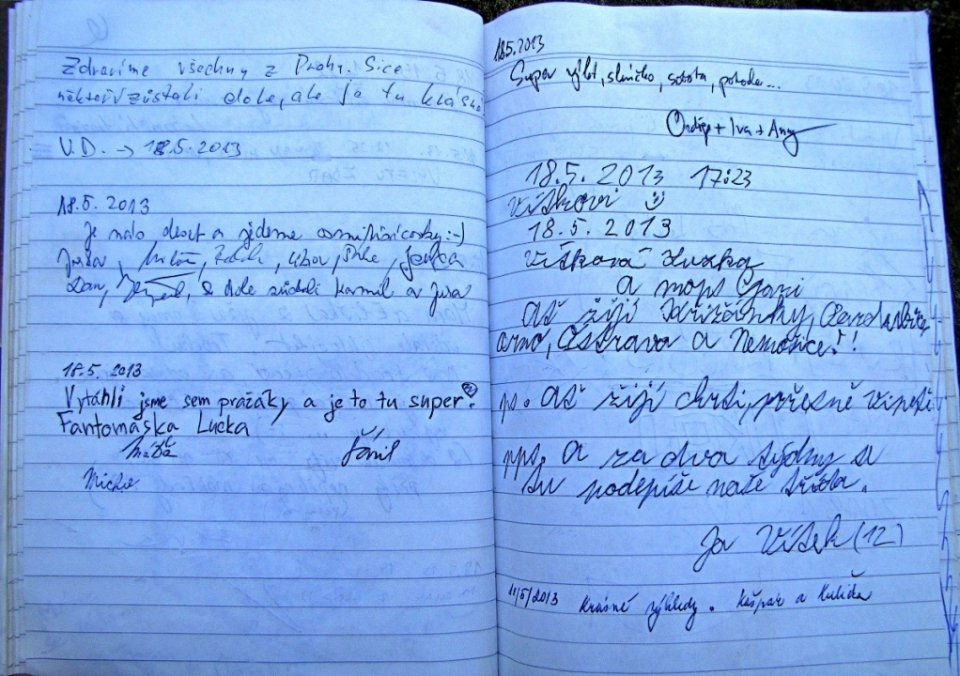 Zdravíme všechny z Prahy. Sice
někteří zůstali dole, ale je tu krásně
V.D. → 18.5.2013
18.5.2013
Je nalo deset a jdeme :-)
Jirka, Libor,
Dan, se dole zůstali Kamil a Jirka
18.5.2013
Vytáhli jsme sem pražáky a je to tu super!
Fantomáska Lucka
Míša
18.5.2013
Super výlet, sluníčko, sobota, pohoda...
Ondřej + Iva + Any
18.5.2013 17:23
Vítkovi
18.5.2013
Vítková Zuzka
a mops Gari
Ať žijí Křižánky,
Brno, Ostrava a Nemošice!!
ps. Ať žijí chrti, přesně vipeti
pps. A za dva týdny se
tu podepíše naše třída.
Ja Vítek (12)
11/5/2013 Krásné výhledy. Kašpar a Kulička